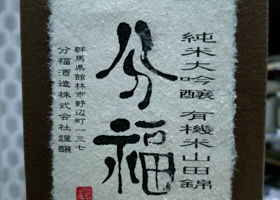 純米大吟醸 有機米山田錦
分福
群馬県館林市野辺町一三七
分福酒造株式会社謹醸